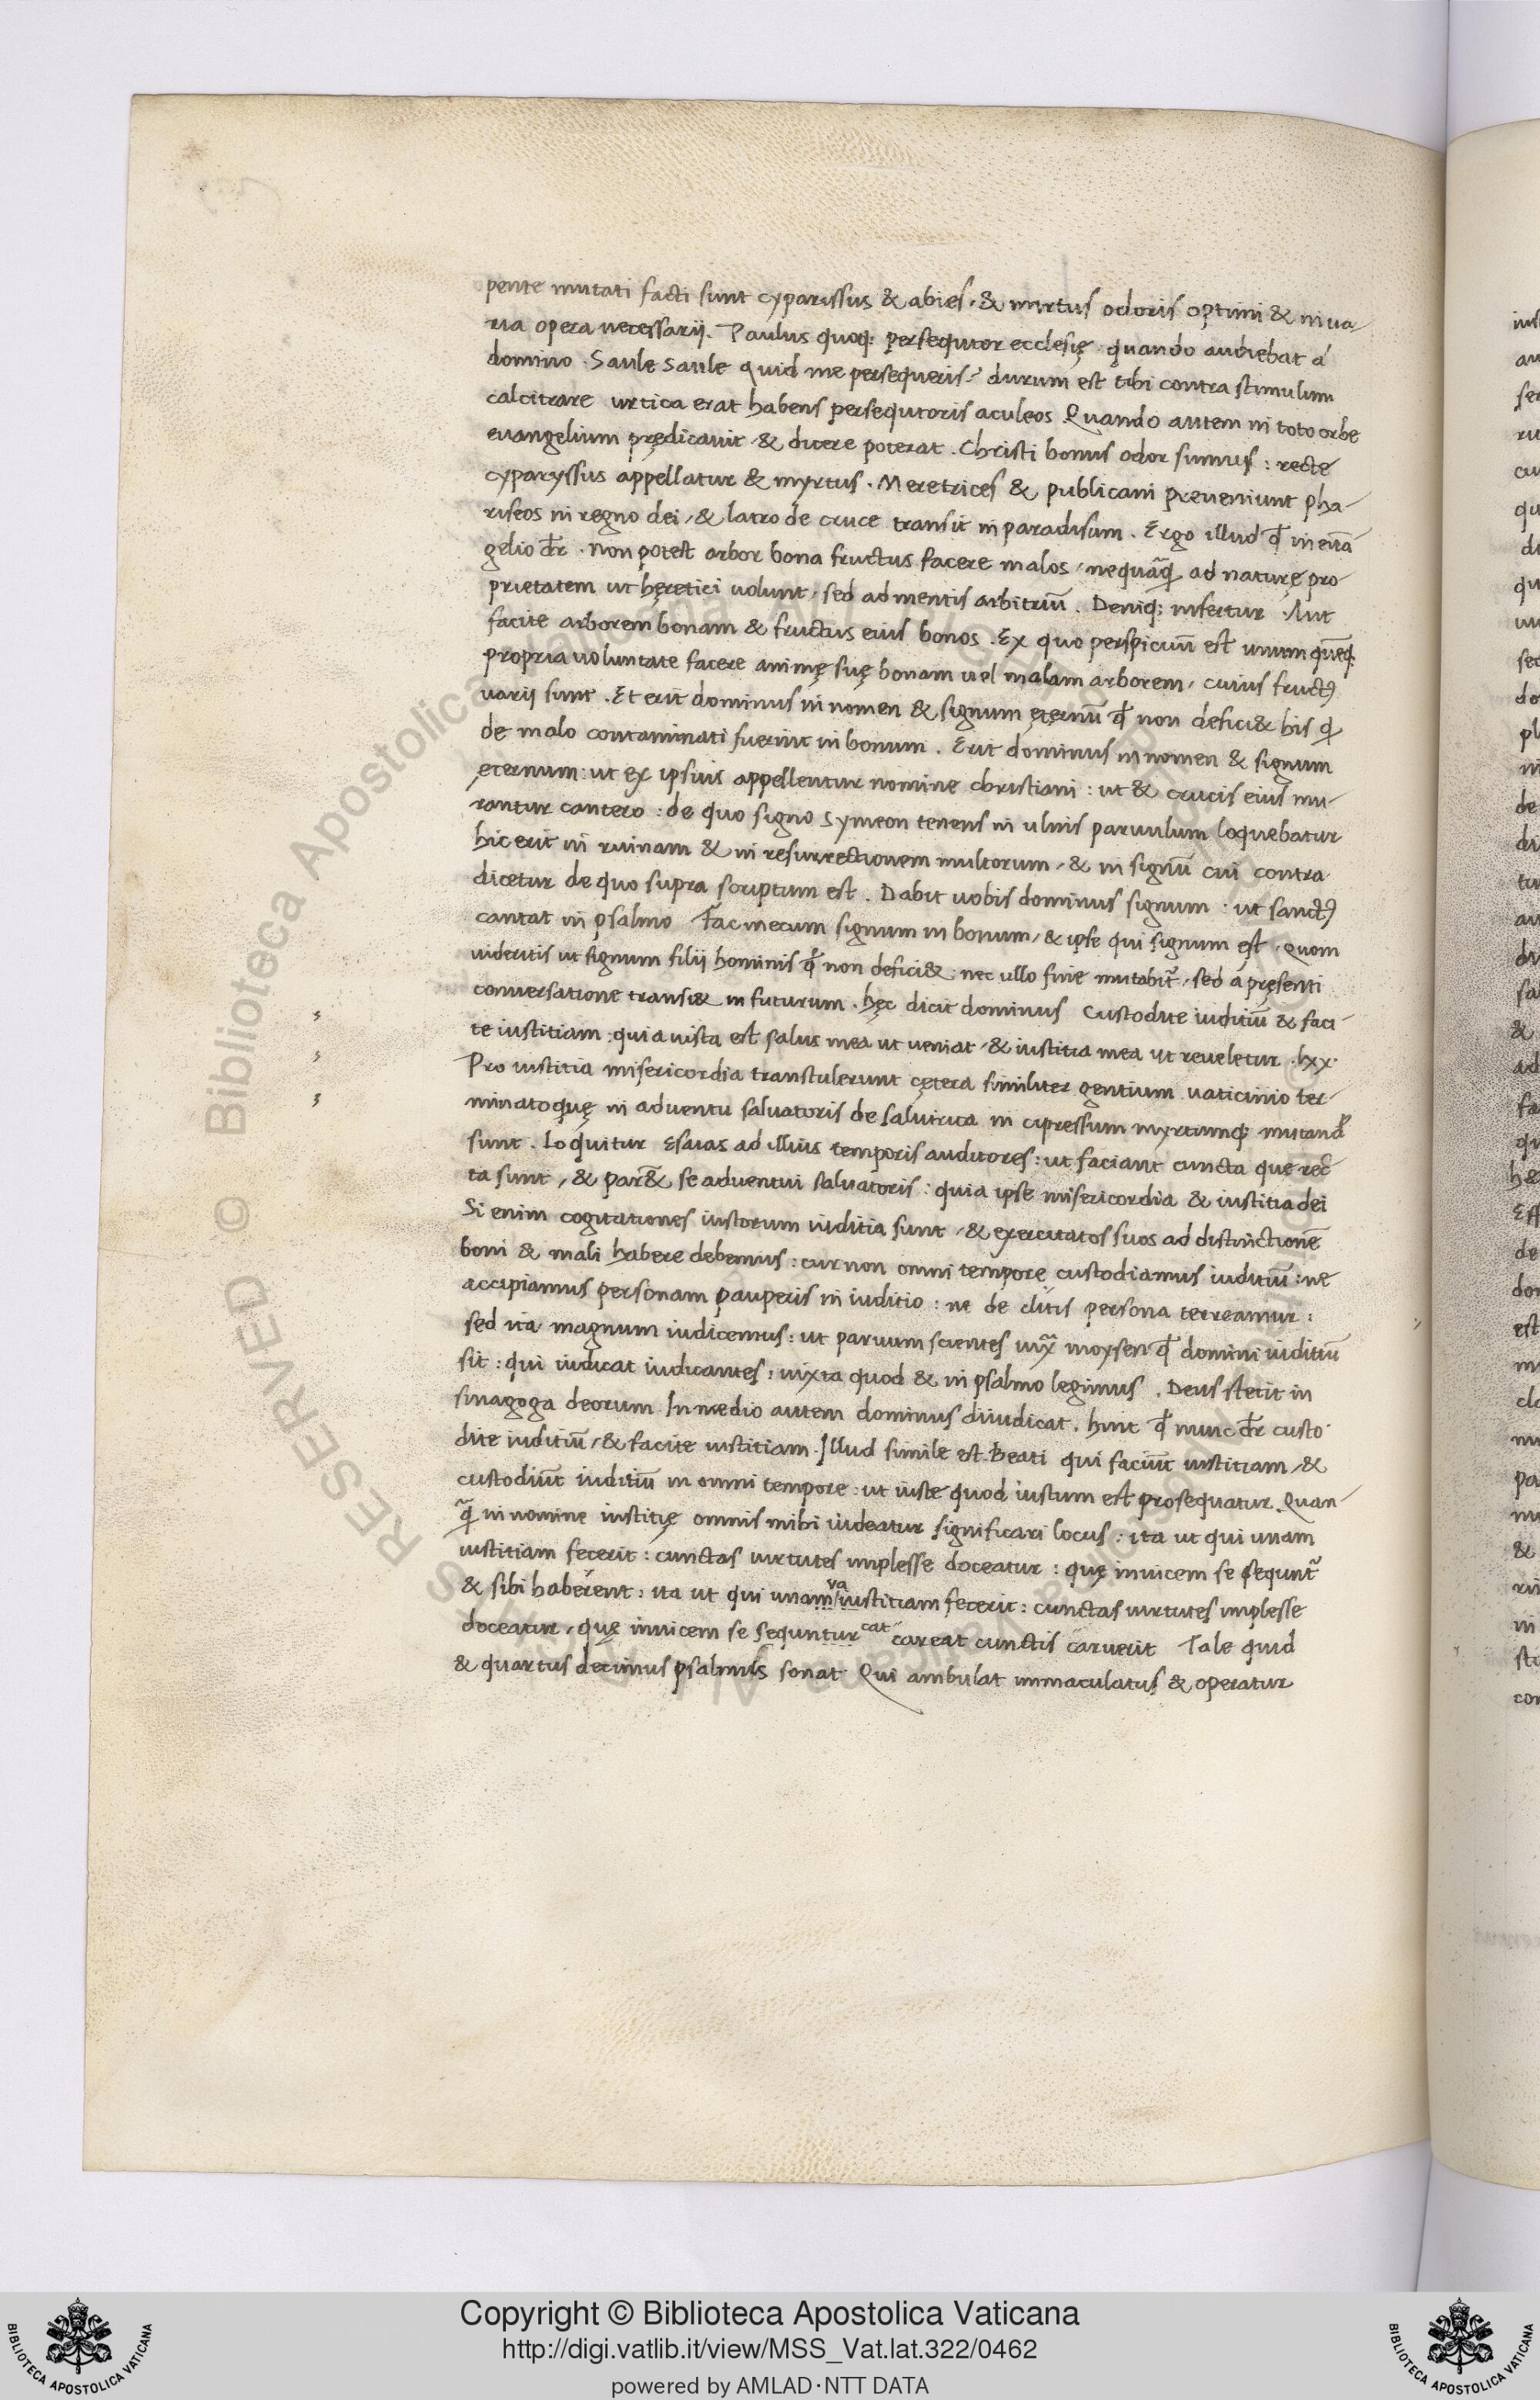 pente mutati facti sunt cyparissus & abies, & mirtus odoris optimi & in ua-
ria opera necessarij. Paulus quoq: persequtor ecclesię quando audiebat á
domino. Saule Saule quid me persequeris? durum est tibi contra stimulum
calcitrare urtica erat habens persequtoris aculeos Quando autem in toto orbe
euangelium prędicauit & dicere poterat. Christi bonus odor sumus: recte
cyparyssus appellatur & myrtus. Meretrices & publicani preueniunt pha-
riseos in regno dei, & latro de cruce transit in paradisum. Ergo illud qđ in euā
gelio dr̄. Non potest arbor bona fructus facere malos, nequāq̄ ad naturę pro-
prietatem ut hęretici uolunt, sed ad mentis arbitriū. Deniq: infertur. Aut
facite arborem bonam & fructus eius bonos. Ex quo perspicuū est unumquēq:
propria uoluntate facere animę suę bonam uel malam arborem, cuius fructꝰ
uarij sunt. Et erit dominus in nomen & signum ęternū qđ non defici& his q
de malo contaminati fuerint in bonum. Erit dominus in nomen & signum
ęternum: ut ex ipsius appellentur nomine christiani: ut & crucis eius mu-
rantur cantero: de quo signo Symeon tenens in ulnis paruulum loquebatur
hic erit in ruinam & in resurrectionem multorum, & in signū cui contra
dicetur de quo supra scriptum est. Dabit uobis dominus signum: ut sanctꝰ
cantat in psalmo Fac mecum signum in bonum, & ipse qui signum est, quom
uideritis ut signum filij hominis qđ non defici&: nec ullo fine mutabit̄, sed á pręsenti
conuersatione transi& in futurum. hęc dicit dominus Custodite iuditiū & faci-
te iustitiam: quia iuxta est salus mea ut ueniat, & iustitia mea ut reueletur. lxx.
Pro iustitia misericordia transtulerunt cętera similiter gentium uaticinio ter-
minatoquę in aduentu saluatoris de saliutica in cipressum myrtumq mutand
sunt. Loquitur Esaias ad illius temporis auditores: ut faciant cuncta que rec
ta sunt, & par& se aduentui saluatoris: quia ipse misericordia & iustitia dei
Si enim cogitationes iustorum iuditia sunt, & exercitatos suos ad distinctionē
boni & mali habere debemus: cur non omni tempore custodiamus iuditiū: ne
accipiamus personam pauperis in iuditio: ne de ditis persona terreamur:
sed ita magnum iudicemus: ut paruum scientes iux̄ moysen qđ domini iuditiū
sit: qui iudicat iudicantes: iuxta quod & in psalmo legimus. Deus stetit in
sinagoga deorum In medio autem dominus diiudicat. hinc qđ nunc dr̄ custo
dite iuditiū, & facite iustitiam. Illud simile est Beati qui faciūt iustitiam, &
custodiūt iuditiū in omni tempore: ut iuste quod iustum est prosequatur. Quan-
q̄ in nomine iustitię omnis mihi uideatur significari locus: ita ut qui unam
iustitiam fecerit: cunctas uirtutes implesse doceatur: quę inuicem se sequunt̄
& sibi haberent: ita ut qui unam va iustitiam fecerit: cunctas uirtutes implesse
doceatur, quę inuicem se sequntur cat careat cunctis caruerit Tale quid
& quartus decimus psalmus sonat Qui ambulat immaculatus & operatur
Copyright © Biblioteca Apostolica Vaticana
http://digi.vatlib.it/view/MSS_Vat.lat.322/0462
powered by AMLAD·NTT DATA